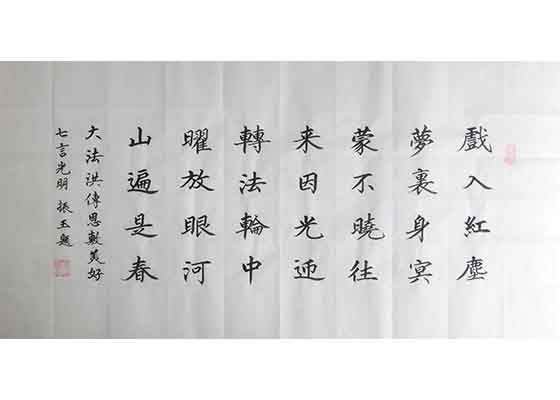 戲入紅塵
夢裏身冥
蒙不曉往
来因光迊
轉法輪中
曜放眼河
山遍是春
大法洪傳恩數美好
七言光明 振玉題